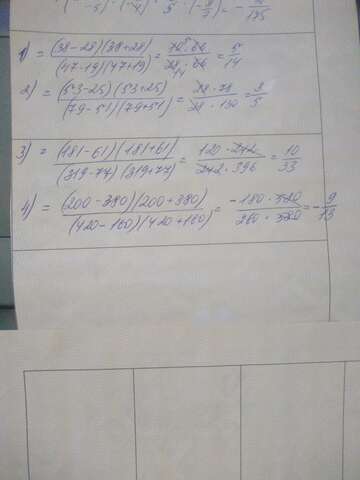 1) = (38-28)(38+28) / (47-19)(47+19) = 10·66 / 28·66 = 5/14
2) = (53-25)(53+25) / (79-51)(79+51) = 28·78 / 28·130 = 3/5
3) = (181-61)(181+61) / (319-77)(319+77) = 120·242 / 242·396 = 10/33
4) = (200-380)(200+380) / (420-160)(420+160) = -180·580 / 260·580 = -9/13